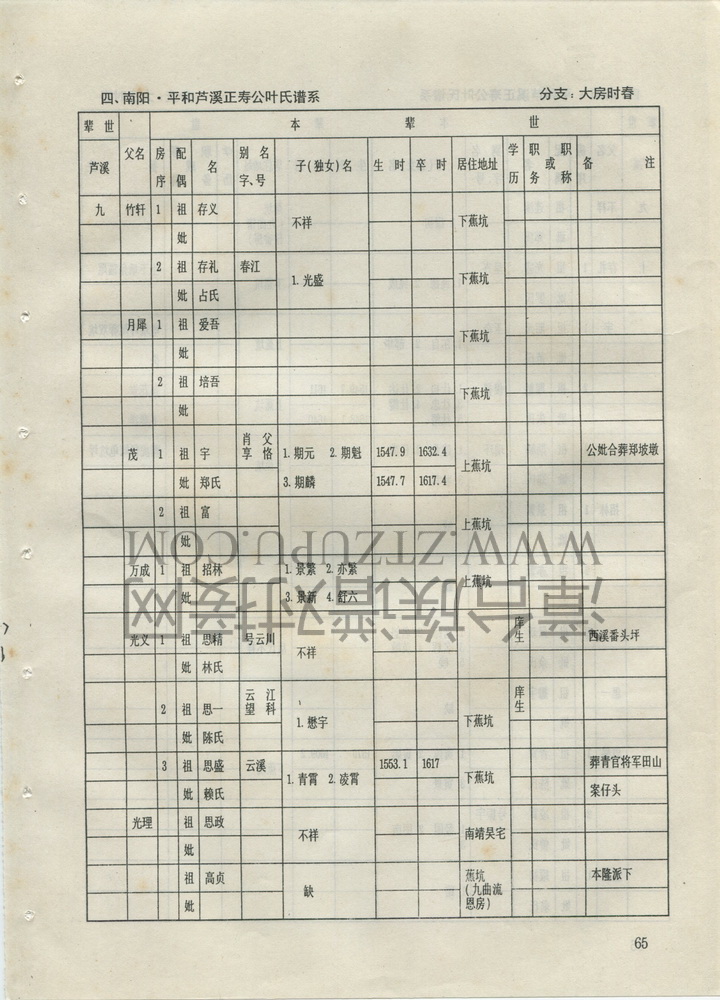 四、南阳·平和芦溪正寿公叶氏谱系 分支：大房时春
辈世 本辈世
芦溪 父名 房序 配偶 名 别名字、号 子(独女)名 生时 卒时 居住地址 学历 职务或职称 备注
九 竹轩 1 祖 存义 不祥 下蕉坑
妣
2 祖 存礼 春江 1.光盛 下蕉坑
妣 占氏
月犀 1 祖 爱吾 下蕉坑
妣
2 祖 培吾 下蕉坑
妣
茂 1 祖 宇 肖父享恪 1.期元 2.期魁 1547.9 1632.4 上蕉坑 公妣合葬郑坡墩
妣 郑氏 3.期麟 1547.7 1617.4
2 祖 富 上蕉坑
妣
万成 1 祖 招林 1.景繁 2.亦繁 上蕉坑
妣 3.景新 4.舒六
光义 1 祖 思精 号云川 不祥 庠生 西溪番头坪
妣 林氏
2 祖 思一 云江望科 1.懋宇 下蕉坑 庠生
妣 陈氏
3 祖 思盛 云溪 1.青霄 2.凌霄 1553.1 1617 下蕉坑 葬青官将军田山
妣 赖氏 案仔头
光理 祖 思政 不祥 南靖吴宅
妣
祖 高贞 缺 蕉坑(九曲流恩房) 本隆派下
妣
65
WWW.ZTZUPU.COM
漳台族谱对接网